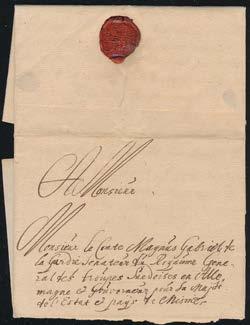 A Monsieur
Monsieur le Conte Magnus Gabriel de
la Gardie Senateur du Royaume Gene
ral des trouppes Suedoises en Alle
magne et Gouverneur pour sa Majté
de l'Estat et pays de